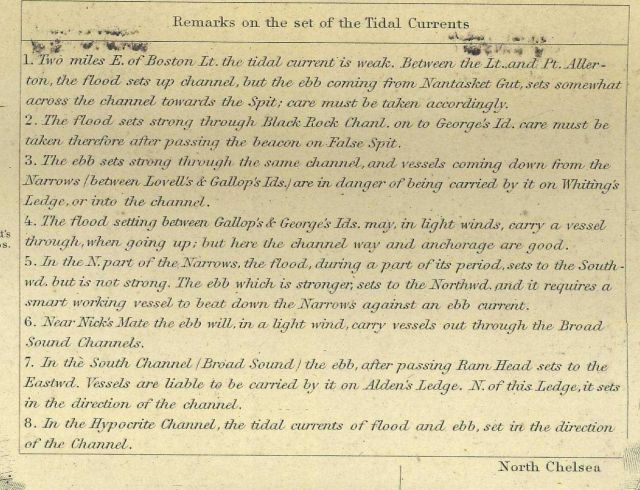 Remarks on the set of the Tidal Currents
1. Two miles E. of Boston Lt. the tidal current is weak. Between the Lt. and Pt. Aller-
ton, the flood sets up channel, but the ebb coming from Nantasket Gut, sets somewhat
across the channel towards the Spit; care must be taken accordingly.
2. The flood sets strong through Black Rock Chanl. on to George's Id. care must be
taken therefore after passing the beacon on False Spit.
3. The ebb sets strong through the same channel, and vessels coming down from the
Narrows (between Lovell's & Gallop's Ids.) are in danger of being carried by it on Whiting's
Ledge, or into the channel.
4. The flood setting between Gallop's & George's Ids. may, in light winds, carry a vessel
through, when going up; but here the channel way and anchorage are good.
5. In the N. part of the Narrows. the flood, during a part of its period, sets to the South-
wd. but is not strong. The ebb which is stronger, sets to the Northwd. and it requires a
smart working vessel to beat down the Narrows against an ebb current.
6. Near Nick's Mate the ebb will, in a light wind, carry vessels out through the Broad
Sound Channels.
7. In the South Channel (Broad Sound) the ebb, after passing Ram Head sets to the
Eastwd. Vessels are liable to be carried by it on Alden's Ledge. N. of this Ledge, it sets
in the direction of the channel.
8. In the Hypocrite Channel, the tidal currents of flood and ebb, set in the direction
of the Channel.
North Chelsea